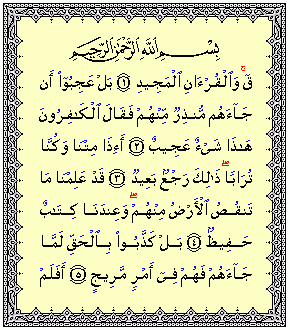 بِسْمِ ٱللَّهِ ٱلرَّحْمَٰنِ ٱلرَّحِيمِ
قٓۚ وَٱلْقُرْءَانِ ٱلْمَجِيدِ ١ بَلْ عَجِبُوٓا۟ أَن
جَآءَهُم مُّنذِرٌ مِّنْهُمْ فَقَالَ ٱلْكَٰفِرُونَ
هَٰذَا شَىْءٌ عَجِيبٌ ٢ أَءِذَا مِتْنَا وَكُنَّا
تُرَابًاۖ ذَٰلِكَ رَجْعٌۢ بَعِيدٌ ٣ قَدْ عَلِمْنَا مَا
تَنقُصُ ٱلْأَرْضُ مِنْهُمْۖ وَعِندَنَا كِتَٰبٌ
حَفِيظٌۢ ٤ بَلْ كَذَّبُوا۟ بِٱلْحَقِّ لَمَّا
جَآءَهُمْ فَهُمْ فِىٓ أَمْرٍ مَّرِيجٍ ٥ أَفَلَمْ